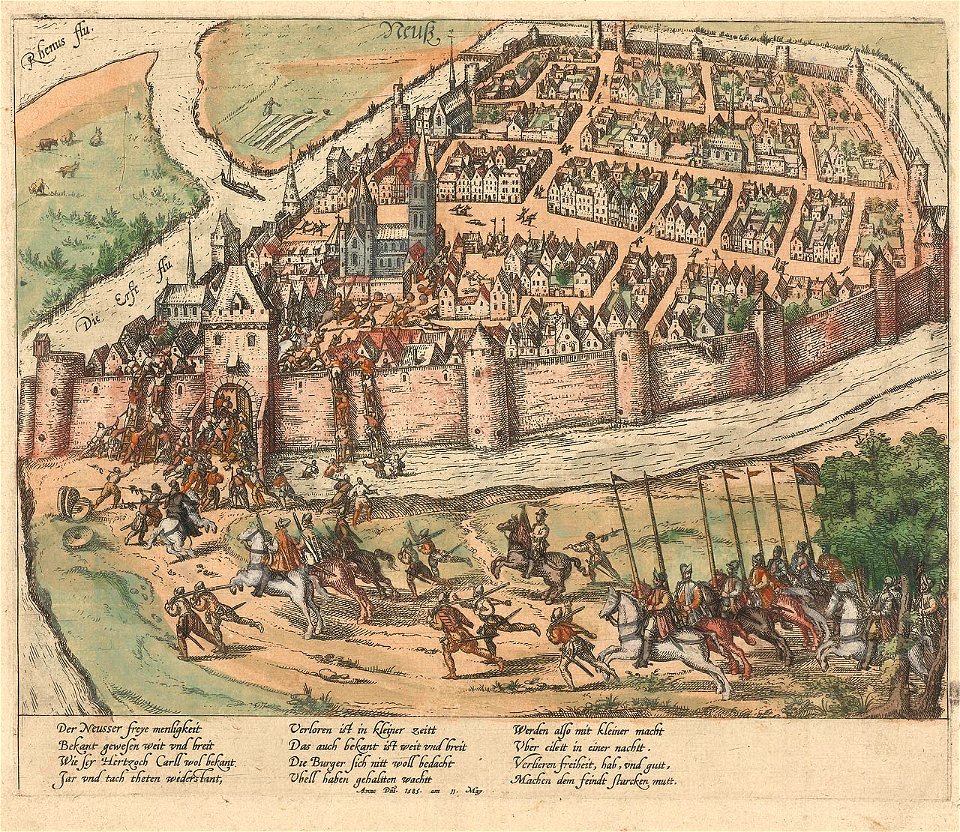 Rhenus flu.
Neuß
Die Erft flu
Der Neusser freye menligkeit
Bekant gewesen weit vnd breit
Wie ser Hertzoch Carll wol bekant.
Jar vnd tach theten widerstant,
Verloren ist in kleiner zeitt
Das auch bekant ist weit vnd breit
Die Burger sich nitt woll bedacht
Vbell haben gehaltten wacht
Werden also mit kleiner macht
Vber eilett in einer nachtt.
Verlieren freiheit, hab, vnd gutt,
Machen dem feindt starcken mutt.
Anno Dni. 1585. am 11. May